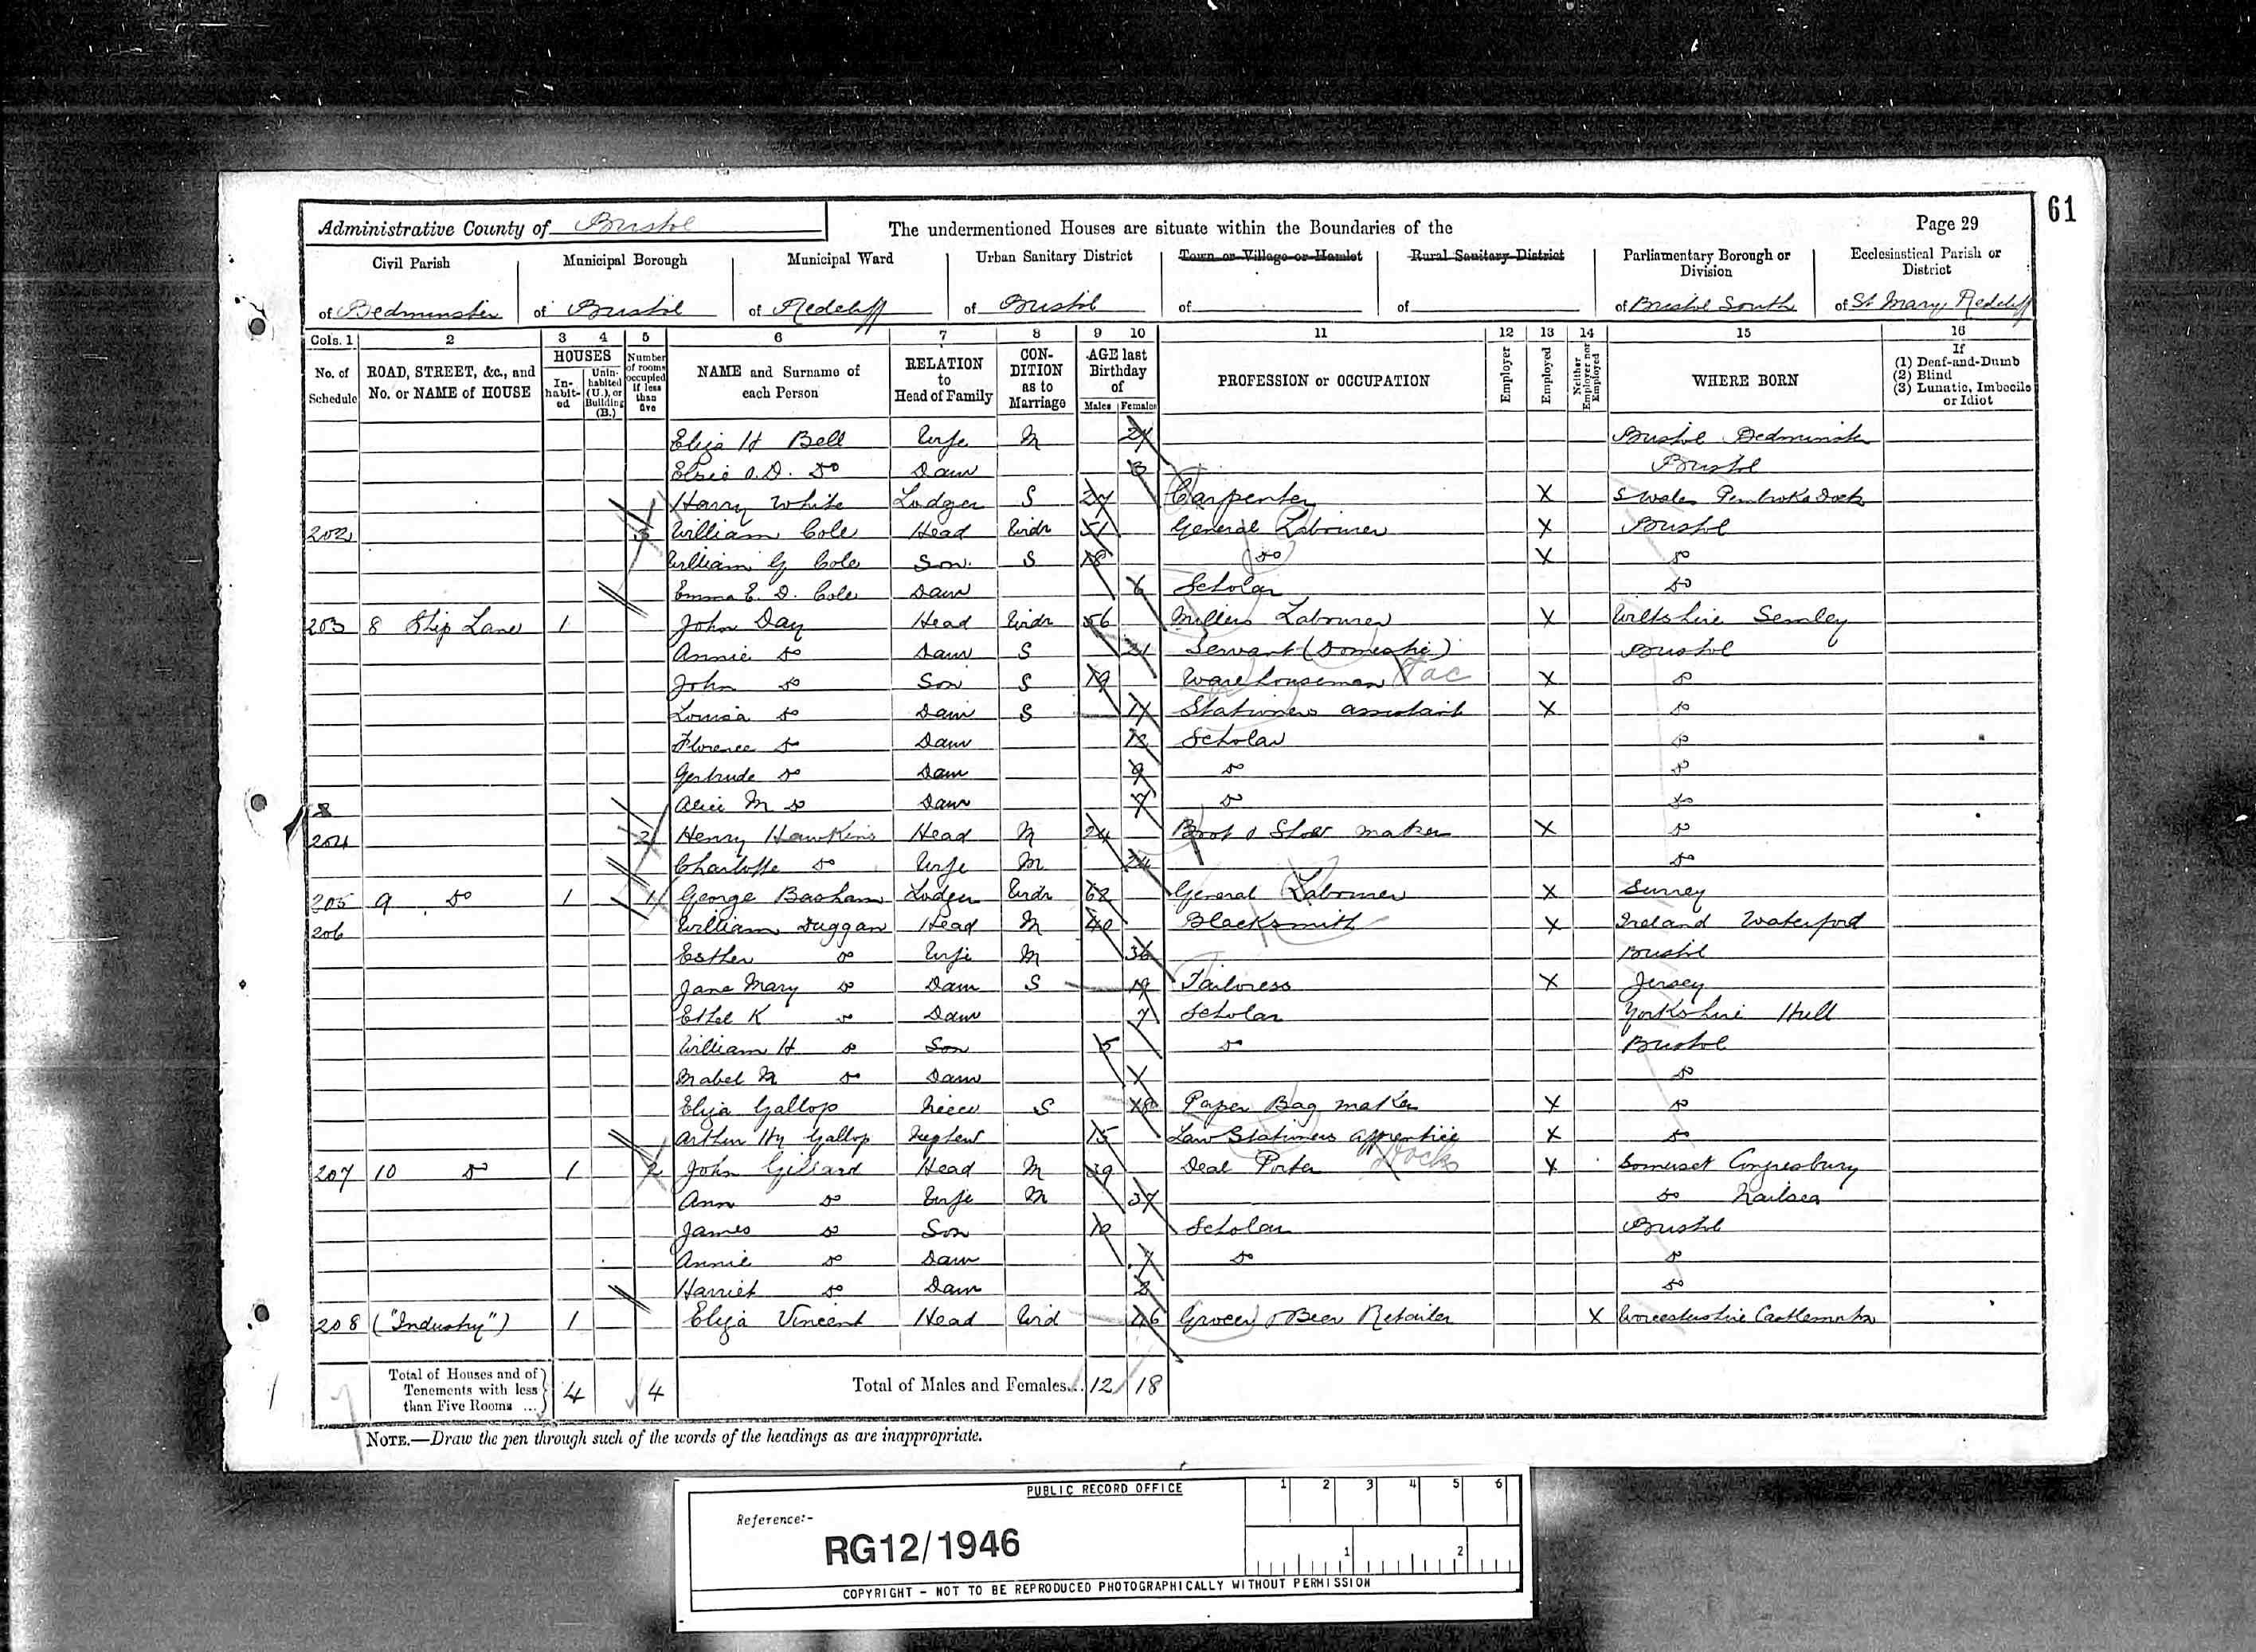 61
Administrative County of Bristol The undermentioned Houses are situate within the Boundaries of the Page 29
Civil Parish Municipal Borough Municipal Ward Urban Sanitary District Town or Village or Hamlet Rural Sanitary District Parliamentary Borough or Division Ecclesiastical Parish or District
of Bedminster of Bristol of Redcliff of Bristol of of of Bristol South of St Mary Redcliff
Cols. 1 2 3 4 5 6 7 8 9 10 11 12 13 14 15 16
No. of Schedule ROAD, STREET, &c., and No. or NAME of HOUSE HOUSES Inhabited Uninhabited (U.), or Building (B.) Number of rooms occupied if less than five NAME and Surname of each Person RELATION to Head of Family CONDITION as to Marriage AGE last Birthday of Males Females PROFESSION or OCCUPATION Employer Employed Neither Employer nor Employed WHERE BORN If (1) Deaf-and-Dumb (2) Blind (3) Lunatic, Imbecile or Idiot
Eliza H Bell Wife M Bristol Bedminster
Elsie A. D. Do Daur 3 Bristol
Harry White Lodger S 27 Carpenter X S Wales Pembroke Dock
202 3 William Cole Head Widr 51 General Labourer X Bristol
William G Cole Son S 18 Do X Do
Emma E. D. Cole Daur Scholar Do
203 8 Ship Lane 1 John Day Head Widr 56 Millers Labourer X Wiltshire Semley
Annie Do Daur S 21 Servant (Domestic) Bristol
John Do Son S 19 Warehouseman Tac X Do
Louisa Do Daur S 17 Stationers assistant X Do
Florence Do Daur Scholar Do
Gertrude Do Daur 9 Do Do
Alice M Do Daur 7 Do Do
204 2 Henry Hawkins Head M 24 Boot & Shoe maker X Do
Charlotte Do Wife M 24 Do
205 9 Do 1 1 George Basham Lodger Widr 62 General Labourer X Surrey
206 William Duggan Head M 40 Blacksmith X Ireland Waterford
Esther Do Wife M 36 Bristol
Jane Mary Do Daur S Tailoress X Jersey
Ethel K Do Daur 7 Scholar Yorkshire Hull
William H Do Son 5 Do Bristol
Mabel M Do Daur Do
Eliza Gallop Niece S 18 Paper Bag maker X Do
Arthur Hy Gallop Nephew 15 Law Stationers apprentice X Do
207 10 Do 1 2 John Gillard Head M 39 Deal Porter Docks X Somerset Congresbury
Ann Do Wife M 37 Do Nailsea
James Do Son 10 Scholar Bristol
Annie Do Daur 7 Do Do
Harriet Do Daur 2 Do
208 ("Industry") 1 Eliza Vincent Head Wid 46 Grocer & Beer Retailer X Worcestershire
Total of Houses and of Tenements with less than Five Rooms ... 4 4 Total of Males and Females... 12 18
NOTE.—Draw the pen through such of the words of the headings as are inappropriate.
PUBLIC RECORD OFFICE 1 2 3 4 5 6
Reference:-
RG12/1946 1 2
COPYRIGHT - NOT TO BE REPRODUCED PHOTOGRAPHICALLY WITHOUT PERMISSION